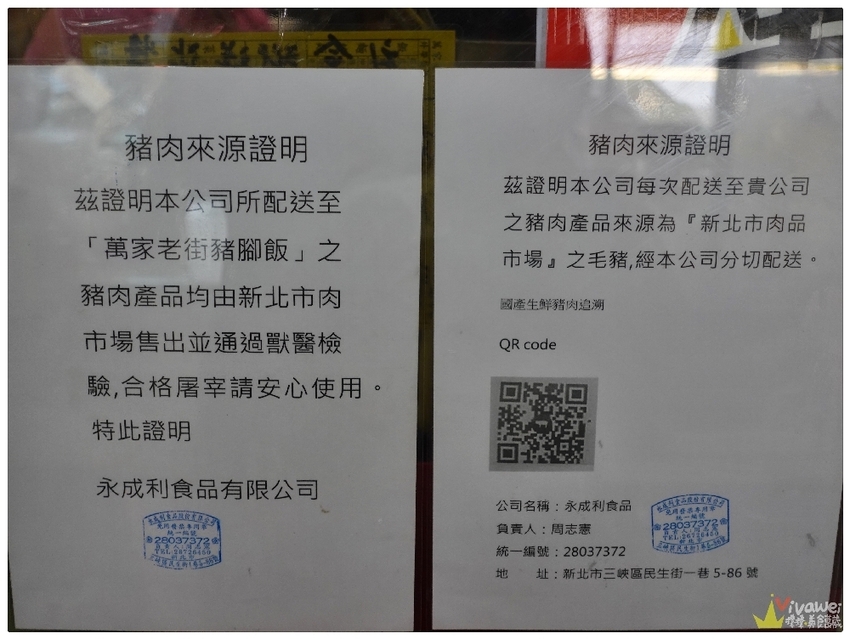 豬肉來源證明
茲證明本公司所配送至
「萬家老街豬腳飯」之
豬肉產品均由新北市肉
市場售出並通過獸醫檢
驗,合格屠宰請安心使用。
特此證明
永成利食品有限公司
統一編號
28037372
豬肉來源證明
茲證明本公司每次配送至貴公司
之豬肉產品來源為『新北市肉品
市場』之毛豬,經本公司分切配送。
國產生鮮豬肉追溯
QR code
公司名稱：永成利食品
負責人：周志憲
統一編號：28037372
地　　址：新北市三峽區民生街一巷 5-86 號
統一編號
28037372
Vivawei